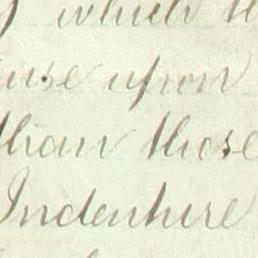 which
upon
than those
Indenture